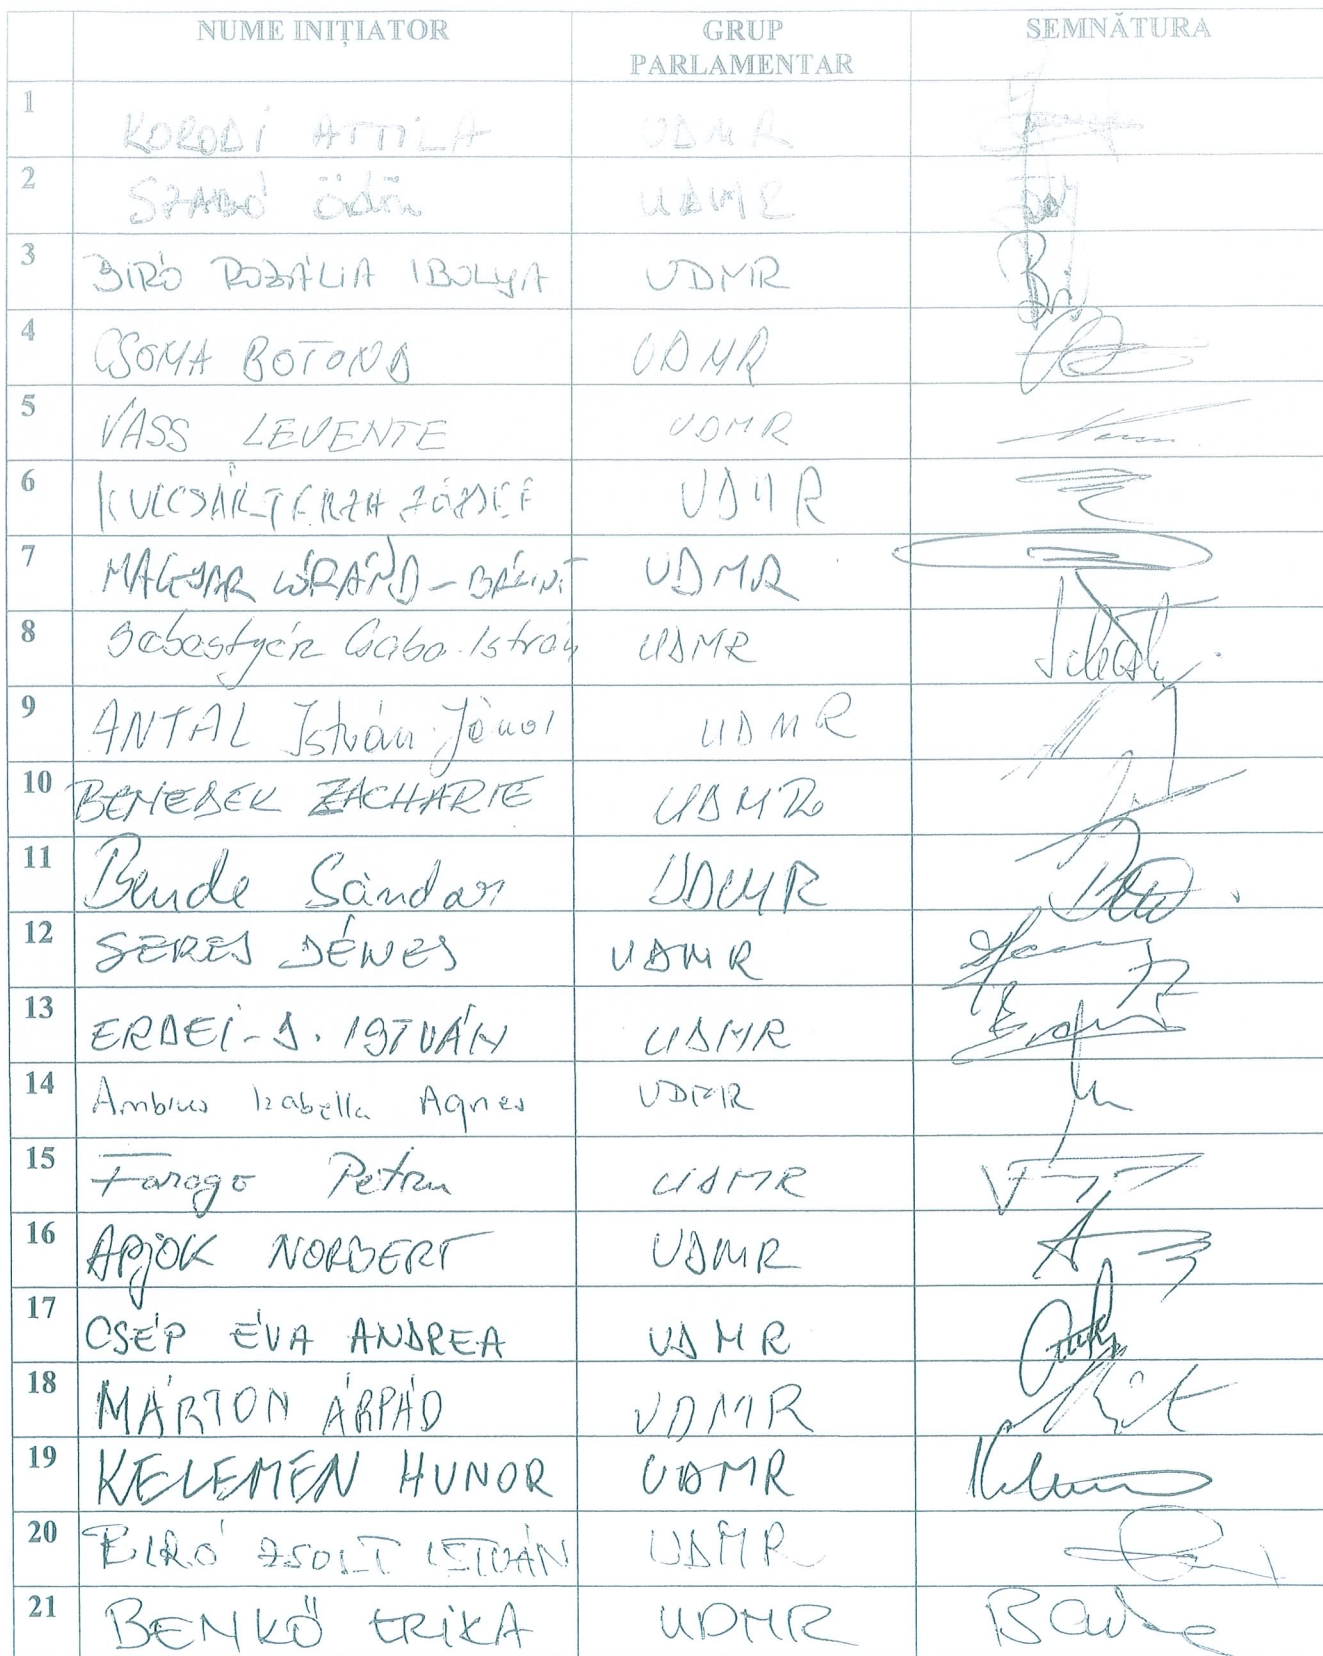 NUME INIȚIATOR GRUP PARLAMENTAR SEMNĂTURA
1 KORODI ATTILA UDMR
2 SZABÓ ÖDÖN UDMR
3 BIRÓ ROZÁLIA IBOLYA UDMR
4 CSOMA BOTOND UDMR
5 VASS LEVENTE UDMR
6 KULCSÁR-TERZA JÓZSEF UDMR
7 MAGYAR LÓRÁND-BÁLINT UDMR
8 Sebestyén Csaba-István UDMR
9 ANTAL István-János UDMR
10 BENEDEK ZACHARIE UDMR
11 Bende Sándor UDMR
12 SERES DÉNES UDMR
13 ERDEI-D. ISTVÁN UDMR
14 Ambrus Izabella Agnes UDMR
15 Farago Petru UDMR
16 APJOK NORBERT UDMR
17 CSÉP ÉVA ANDREA UDMR
18 MÁRTON ÁRPÁD UDMR
19 KELEMEN HUNOR UDMR
20 BIRÓ ZSOLT ISTVÁN UDMR
21 BENKŐ ERIKA UDMR